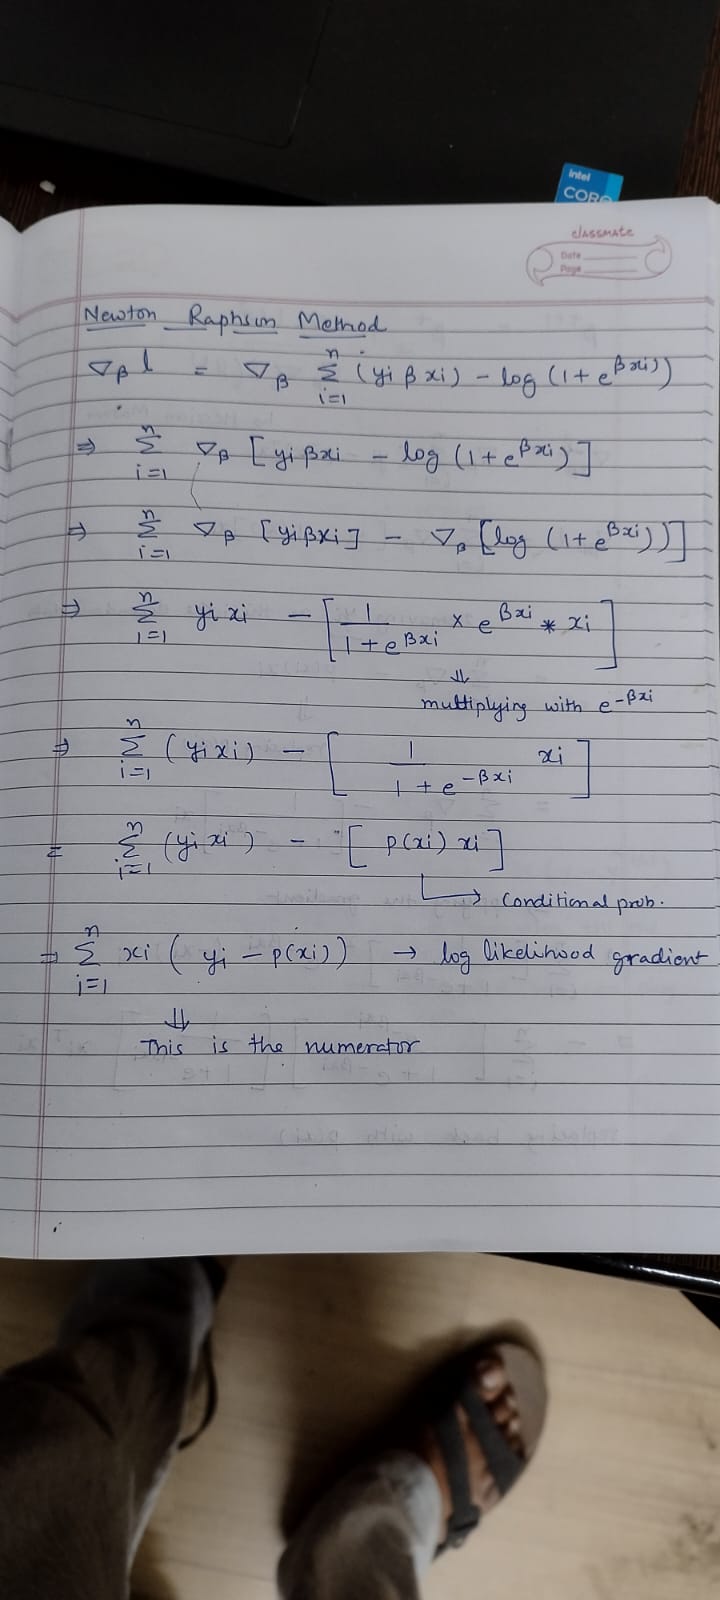 intel
CORE
classmate
Date
Page
Newton Raphson Method
∇β l = ∇β n Σ i=1 (yi β xi) - log (1 + e^βxi))
⇒ n Σ i=1 ∇β [yi βxi - log (1 + e^βxi)]
⇒ n Σ i=1 ∇β [yi βxi] - ∇β [log (1 + e^βxi))]
⇒ n Σ i=1 yi xi - [1 / 1 + e^βxi × e^βxi * xi]
⇓
multiplying with e^-βxi
⇒ n Σ i=1 (yi xi) - [1 / 1 + e^-βxi xi]
= n Σ i=1 (yi xi) - [p(xi) xi]
↳ Conditional prob.
⇒ n Σ i=1 xi (yi - p(xi)) → log likelihood gradient
⇓
This is the numerator